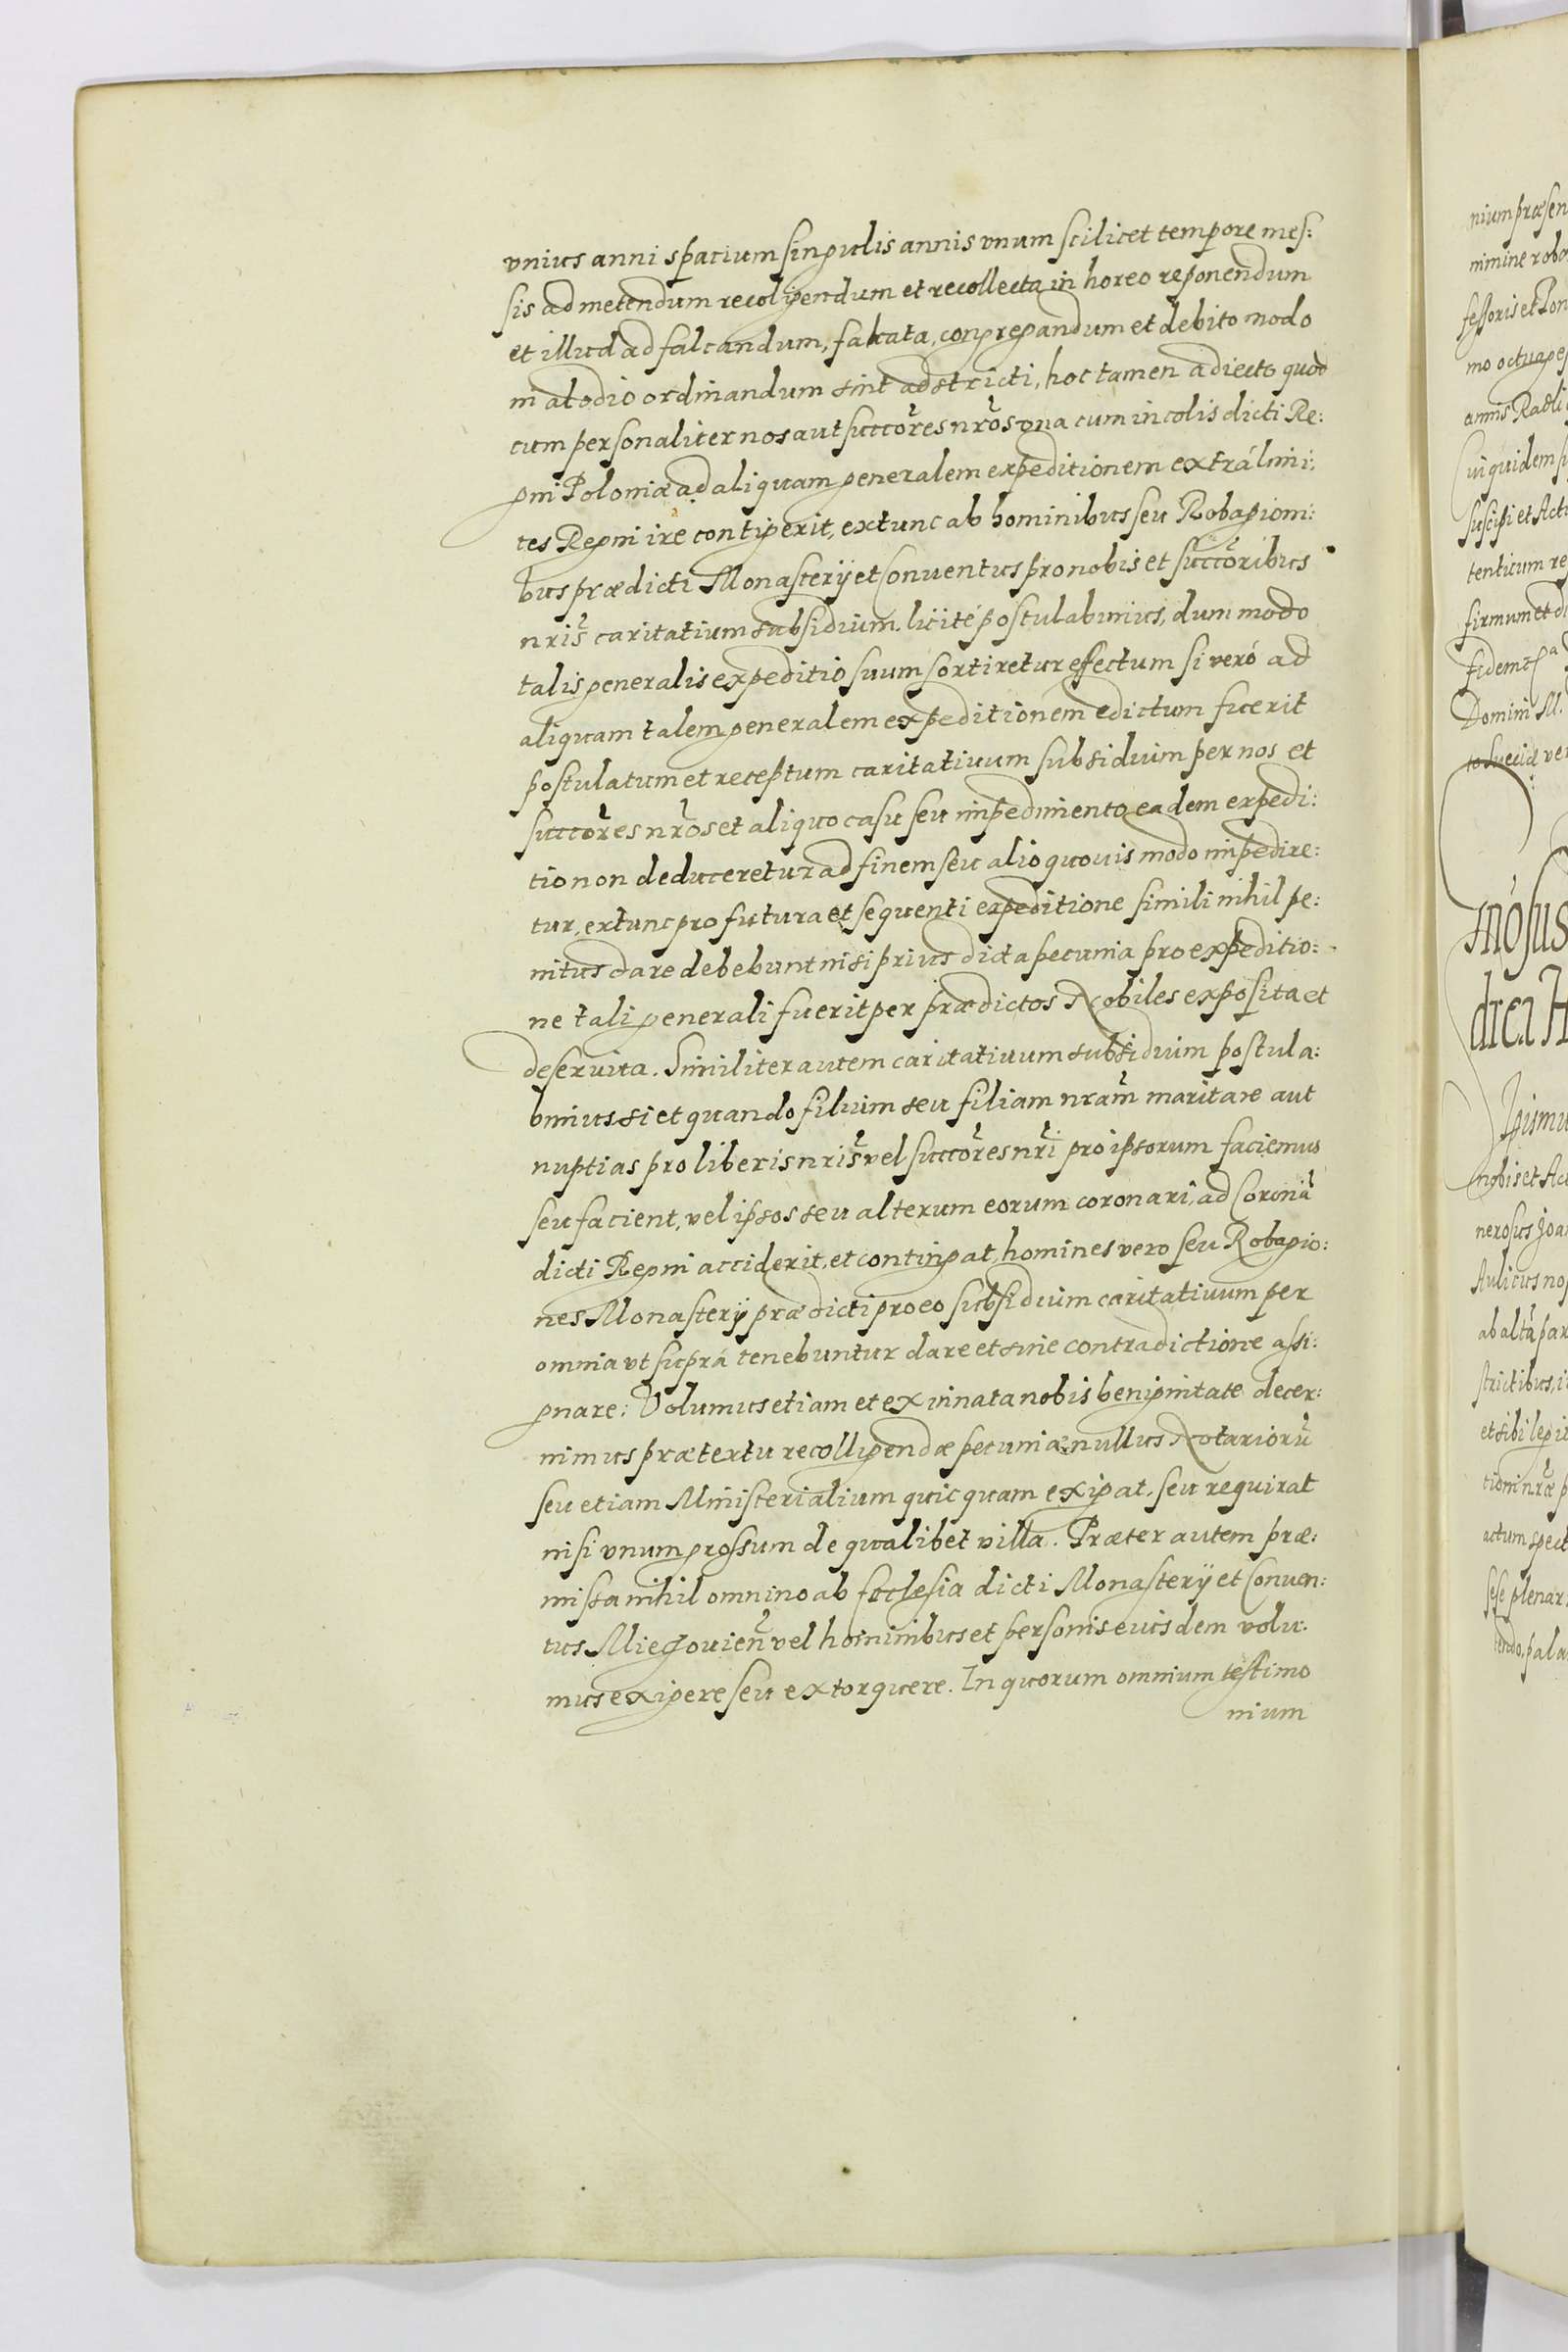 vnius anni spatium singulis annis vnum scilicet tempore mes:
sis ad metendum recoligendum et recollecta in horeo reponendum
et illud ad falcandum, falcata, congregandum et debito modo
in alodio ordinandum sint adstricti, hoc tamen adiecto quod
cum personaliter nos aut succores nros vna cum incolis dicti Re:
gni Poloniæ ad aliquam generalem expeditionem extrá limi:
tes Regni ire contigerit, extunc ab hominibus seu Robagioni:
bus prædicti Monasterÿ et Conventus pro nobis et succoribus
nris caritatium subsidium licité postulabimus, dum modo
talis generalis expeditio suum sortiretur effectum si veró ad
aliquam talem generalem expeditionem edictum fuerit
postulatum et receptum caritativum subsidium per nos et
succores nros et aliquo casu seu impedimento eadem expedi:
tio non deduceretur ad finem seu alio quovis modo impedire:
tur, extunc pro futura et sequenti expeditione simili nihil pe:
nitus dare debebunt nisi prius dicta pecunia pro expeditio:
ne tali generali fuerit per prædictos Nobiles exposita et
deservita. Similiter autem caritativum subsidium postula:
bimus si et quando filium seu filiam nram maritare aut
nuptias pro liberis nris vel succores nri pro ipsorum faciemus
seu facient, vel ipsos seu alterum eorum coronari, ad Coronā
dicti Regni acciderit, et contingat, homines vero seu Robagio:
nes Monasterÿ prædicti pro eo subsidium caritativum per
omnia vt suprá tenebuntur dare et sine contradictione assi:
gnare: Volumus etiam et ex innata nobis benignitate decer:
nimus prætextu recolligendæ pecuniæ nullus Notariorū
seu etiam Ministerialium quicquam exigat, seu requirat
nisi vnum grossum de qualibet villa. Præter autem præ:
missa nihil omnino ab Ecclesia dicti Monasterÿ et Conven:
tus Miegovien vel hominibus et personis euisdem volu:
mus exigere seu extorquere. In quorum omnium testimo
nium
nium præsen
nimine robo
fessoris et Pon
mo octuage
annis Radli
Cui quidem
suscipi et Act
tenticum re
firmum et d
Domini M.
to Sueciæ ve
dici H
nobis et Act
nerosus Joa
Aulicus no
ab altā par
strictibus, i
et sibi legit
tioni nræ p
actum spect
sese plenar
tendo, pala